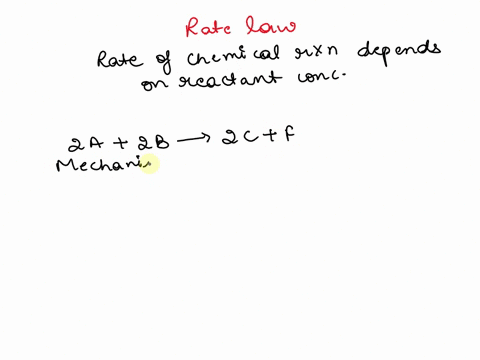 Rate law
Rate of chemical rxn depends
on reactant conc.
2A + 2B → 2C + F
Mechani